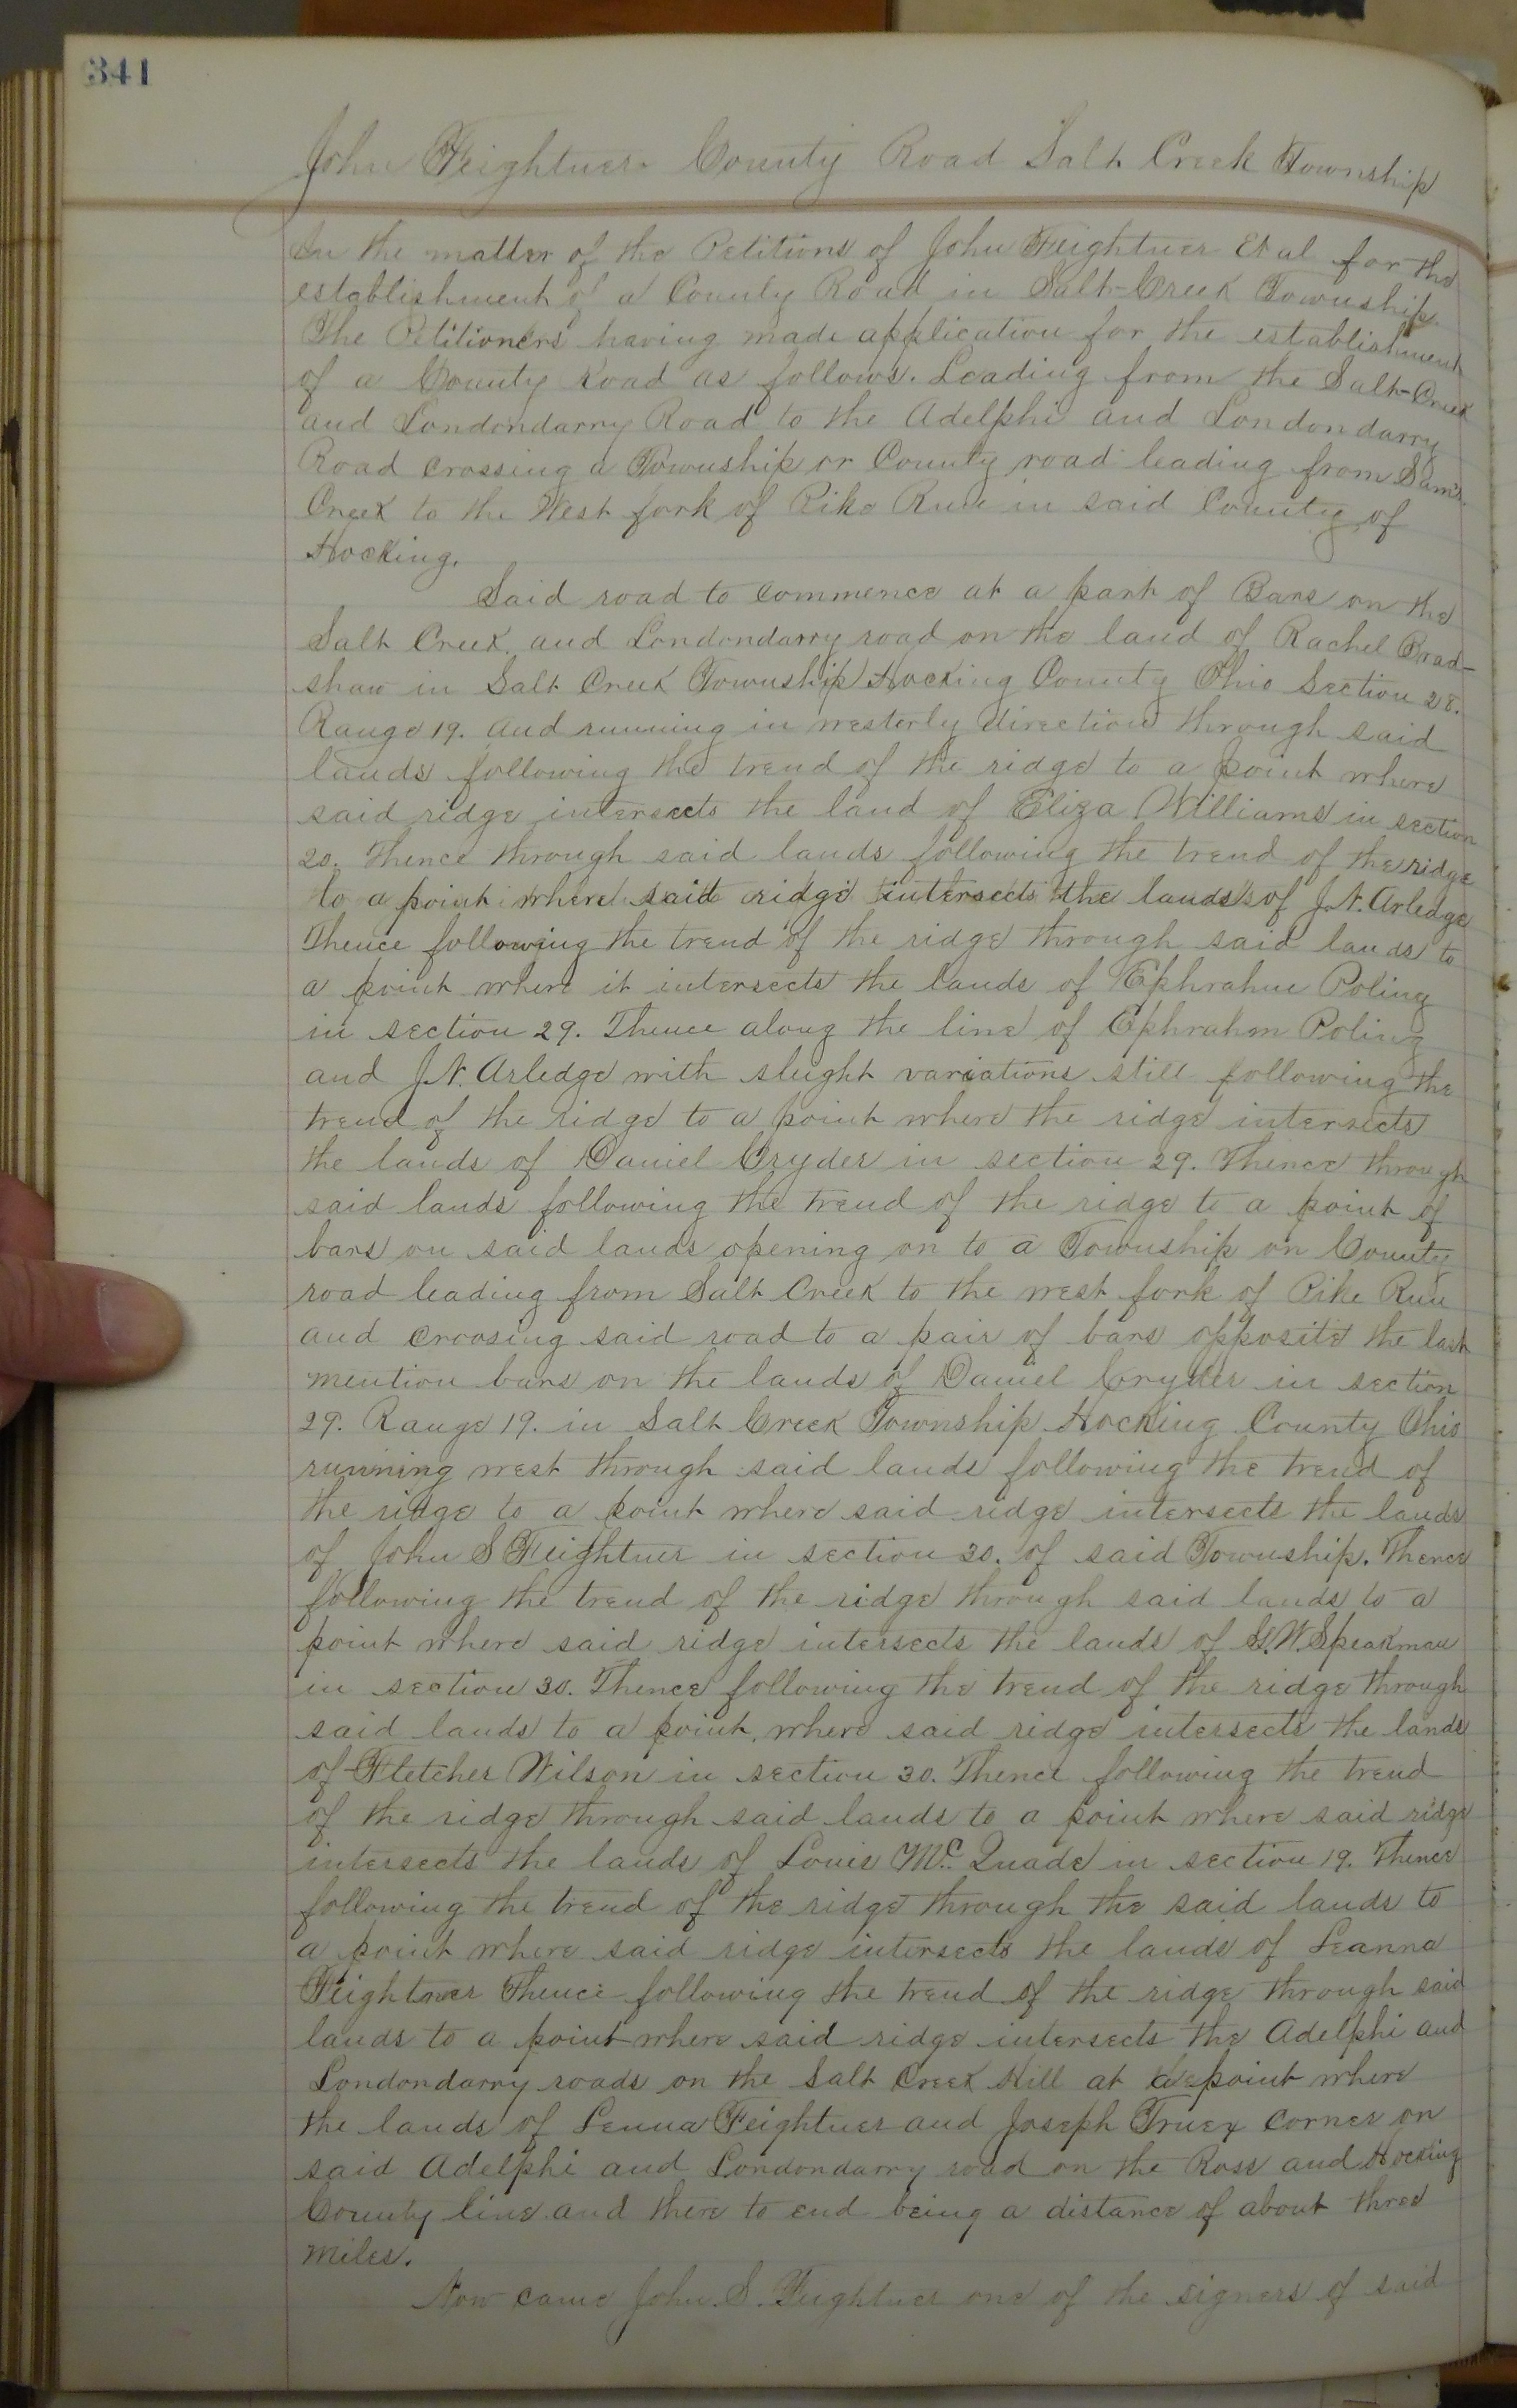 341
John Feightner County Road Salt Creek Township
In the matter of the Petitions of John Feightner Et al for the
establishment of a County Road in Salt-Creek Township.
The Petitioners having made application for the establishment
of a County Road as follows. Leading from the Salt-Creek
and Londondarry Road to the Adelphi and Londondarry
Road crossing a Township or County road leading from Sam's
Creek to the West fork of Pike Run in said County of
Hocking.
Said road to commence at a part of Bars on the
Salt Creek and Londondarry road on the land of Rachel Brad-
shaw in Salt Creek Township Hocking County Ohio Section 28.
Range 19. and running in westerly direction through said
lands following the trend of the ridge to a point where
said ridge intersects the land of Eliza Williams in section
20. Thence through said lands following the trend of the ridge
to a point where said ridge intersects the lands of J.N. Arledge
Thence following the trend of the ridge through said lands to
a point where it intersects the lands of Ephrahm Poling
in section 29. Thence along the line of Ephrahm Poling
and J.N. Arledge with slught variations still following the
trend of the ridge to a point where the ridge intersects
the lands of Daniel Cryder in section 29. Thence through
said lands following the trend of the ridge to a point of
bars on said lands opening on to a Township on County
road leading from Salt Creek to the west fork of Pike Run
and croosing said road to a pair of bars opposite the last
mention bars on the lands of Daniel Cryder in section
29. Range 19. in Salt Creek Township Hocking County Ohio
running west through said lands following the trend of
the ridge to a point where said ridge intersects the lands
of John S Feightner in section 30. of said Township. Thence
following the trend of the ridge through said lands to a
point where said ridge intersects the lands of G.W. Speakman
in section 30. Thence following the trend of the ridge through
said lands to a point where said ridge intersects the lands
of Fletcher Wilson in section 30. Thence following the trend
of the ridge through said lands to a point where said ridge
intersects the lands of Louis Mc. Quade in section 19. Thence
following the trend of the ridge through the said lands to
a point where said ridge intersects the lands of Leanna
Feightner Thence following the trend of the ridge through said
lands to a point where said ridge intersects the Adelphi and
Londondarry roads on the Salt Creek Hill at a point where
the lands of Lenna Feightner and Joseph Truex corner on
said Adelphi and Londondarry road on the Ross and Hocking
County line and there to end being a distance of about three
miles.
Now came John. S. Feightner one of the signers of said